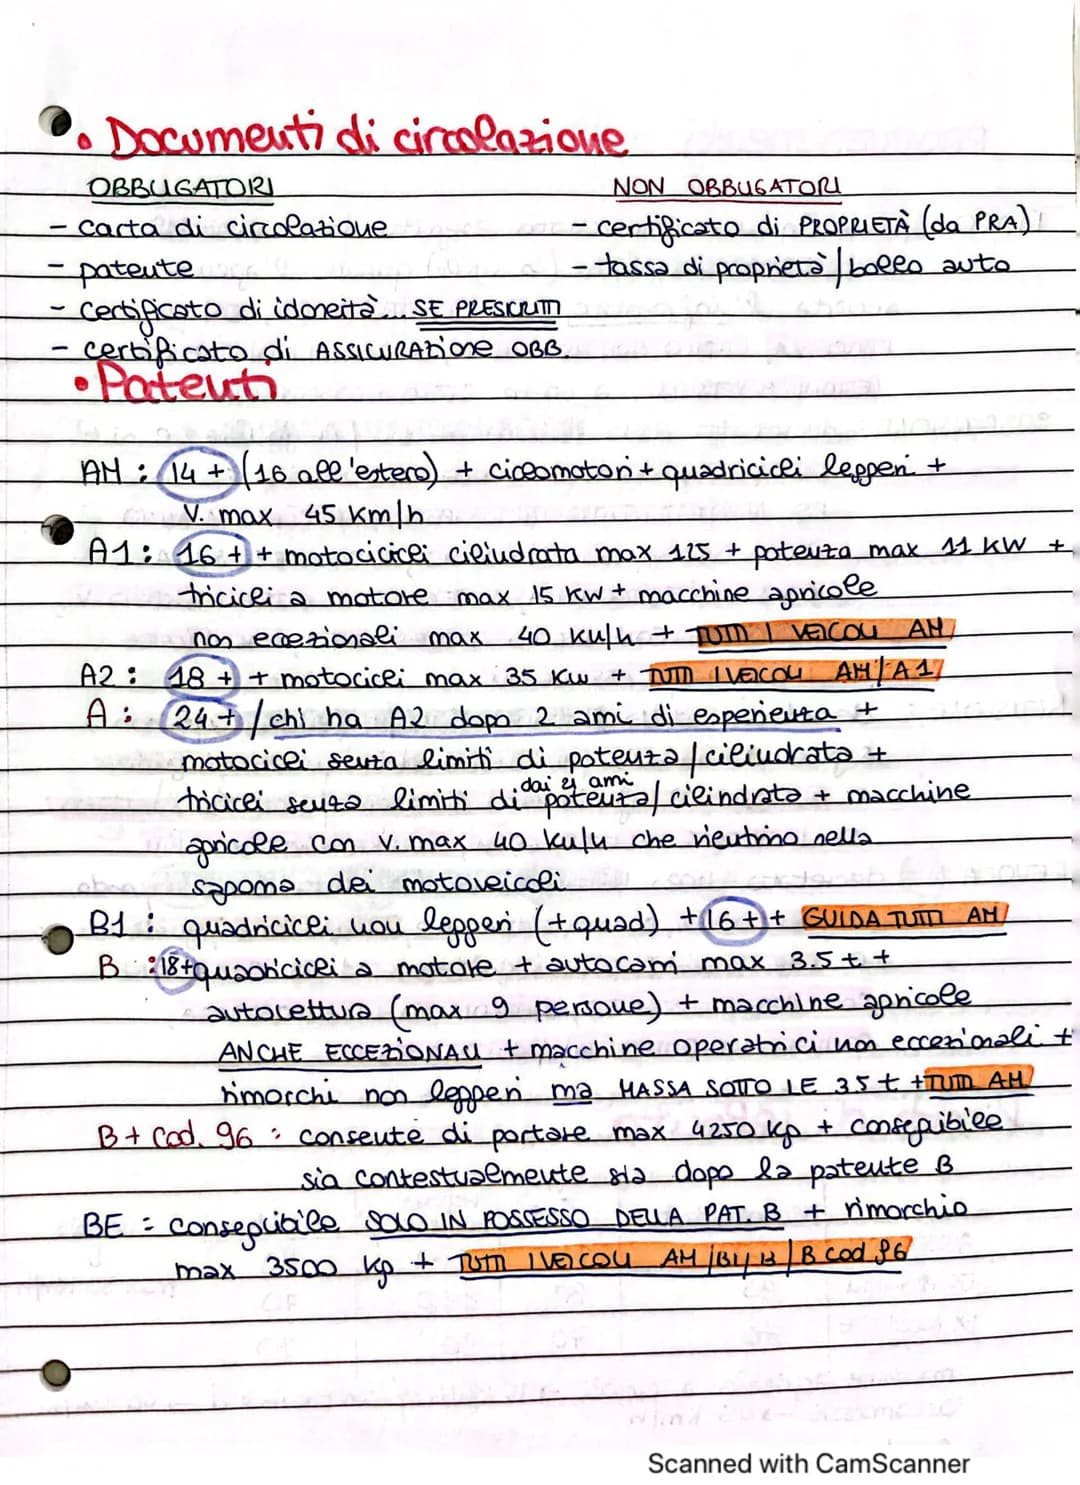 • Documenti di circolazione
OBBLIGATORI
NON OBBLIGATORI
- carta di circolazione
- certificato di PROPRIETÀ (da PRA)
- patente
- tassa di proprietà / bollo auto
- certificato di idoneità SE PRESCRITTI
- certificato di ASSICURAZione OBB.
• Patenti
AM : 14 + (16 all'estero) + ciclomotori + quadricicli leggeri +
V. max 45 Km/h
A1 : 16 + + motocicicli cilindrata max 125 + potenza max 11 KW +
tricicli a motore max 15 KW + macchine agricole
non eccezionali max 40 km/h + TUTTI I VEICOLI AM
A2 : 18 + + motocicli max 35 KW + TUTTI I VEICOLI AM/A1
A : 24 + / chi ha A2 dopo 2 anni di esperienza +
motocicli senza limiti di potenza / cilindrata +
dai 21 anni
tricicli senza limiti di potenza/ cilindrata + macchine
agricole con v. max 40 km/h che rientrino nella
sagoma dei motoveicoli
B1 : quadricicli non leggeri (+ quad) + 16 + + GUIDA TUTTI AM
B : 18+ quadricicli a motore + autocarri max 3.5 t +
autovettura (max 9 persone) + macchine agricole
ANCHE ECCEZIONALI + macchine operatrici non eccezionali +
rimorchi non leggeri ma MASSA SOTTO LE 3.5 t + TUTTI AM
B + Cod. 96 : consente di portare max 4250 kg + conseguibile
sia contestualmente sia dopo la patente B
BE = conseguibile SOLO IN POSSESSO DELLA PAT. B + rimorchio
max 3500 kg + TUTTI I VEICOLI AM /B1/ B / B cod 96
Scanned with CamScanner